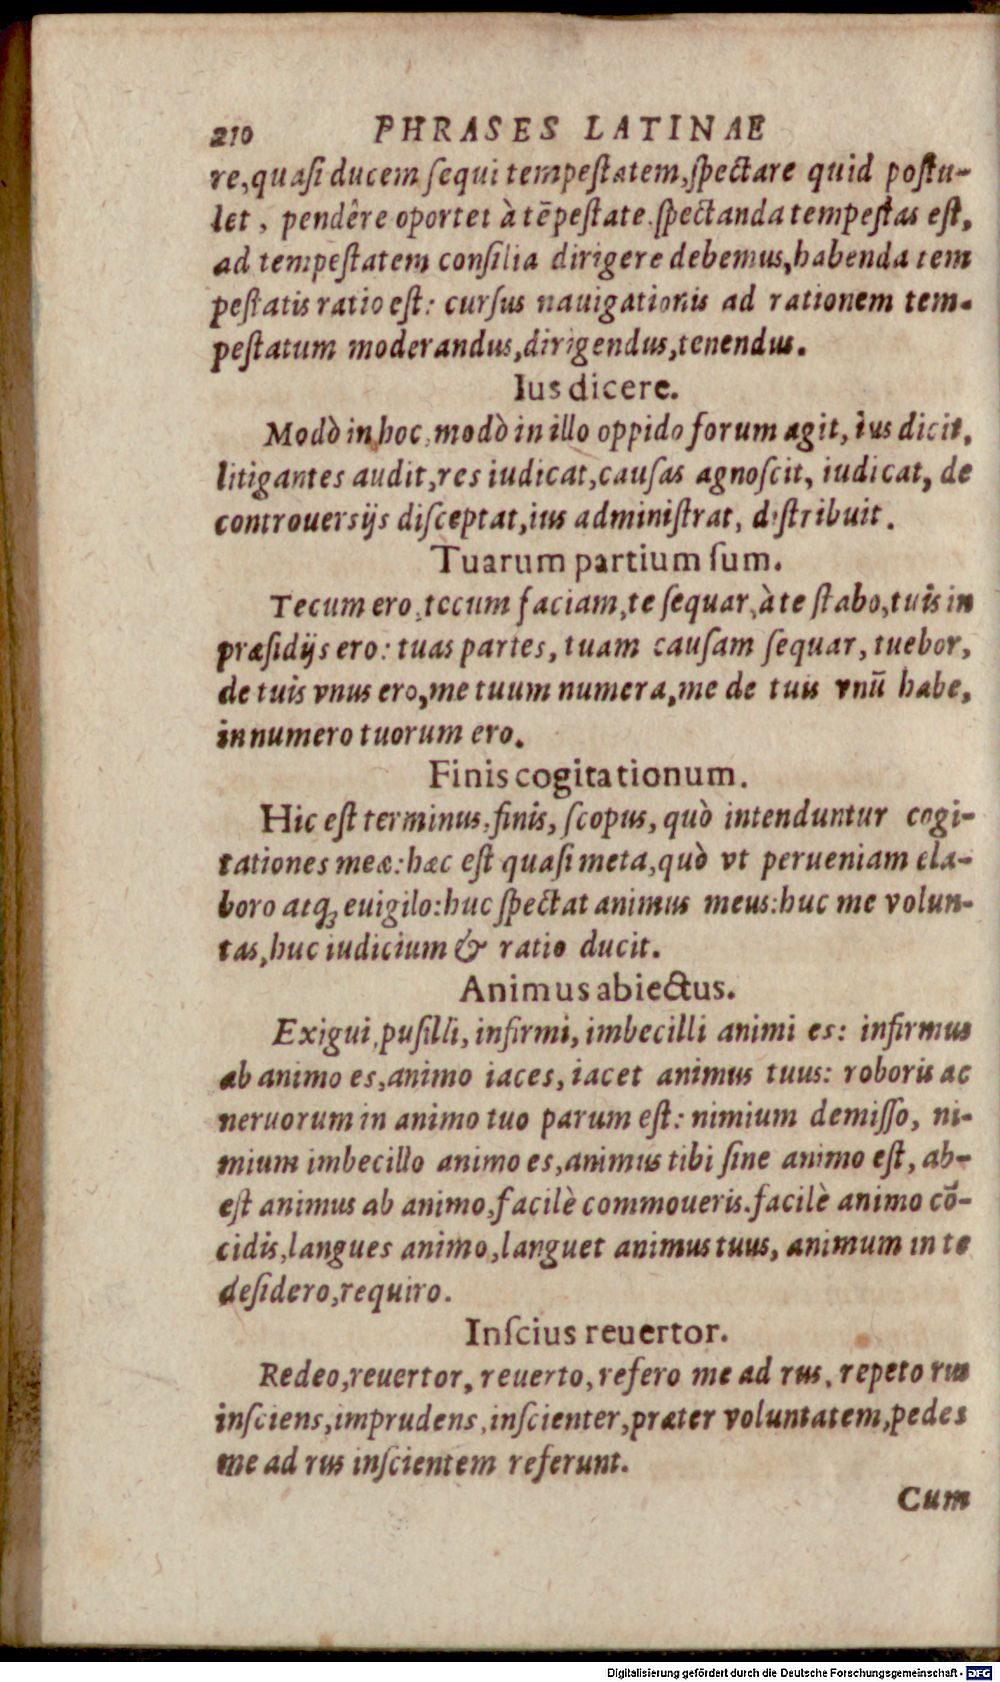 210 PHRASES LATINAE
re, quaſi ducem ſequi tempeſtatem, ſpectare quid poſtu-
let, pendêre oportet à tẽpeſtate. ſpectanda tempeſtas eſt,
ad tempeſtatem conſilia dirigere debemus, habenda tem
peſtatis ratio eſt: curſus nauigationis ad rationem tem-
peſtatum moderandus, dirigendus, tenendus.
Ius dicere.
Modò in hoc, modò in illo oppido forum agit, ius dicit,
litigantes audit, res iudicat, cauſas agnoſcit, iudicat, de
controuerſijs diſceptat, ius adminiſtrat, diſtribuit.
Tuarum partium ſum.
Tecum ero, tecum faciam, te ſequar, à te ſtabo, tuis in
præſidijs ero: tuas partes, tuam cauſam ſequar, tuebor,
de tuis vnus ero, me tuum numera, me de tuis vnũ habe,
in numero tuorum ero.
Finis cogitationum.
Hic eſt terminus, finis, ſcopus, quò intenduntur cogi-
tationes meæ: hæc eſt quaſi meta, quò vt perueniam ela-
boro atq; euigilo: huc ſpectat animus meus: huc me volun-
tas, huc iudicium & ratio ducit.
Animus abiectus.
Exigui, puſilli, infirmi, imbecilli animi es: infirmus
ab animo es, animo iaces, iacet animus tuus: roboris ac
neruorum in animo tuo parum eſt: nimium demiſſo, ni-
mium imbecillo animo es, animus tibi ſine animo eſt, ab-
eſt animus ab animo, facilè commoueris. facilè animo cõ-
cidis, langues animo, languet animus tuus, animum in te
deſidero, requiro.
Inſcius reuertor.
Redeo, reuertor, reuerto, refero me ad rus, repeto rus
inſciens, imprudens, inſcienter, præter voluntatem, pedes
me ad rus inſcientem referunt.
Cum
Digitalisierung gefördert durch die Deutsche Forschungsgemeinschaft - DFG